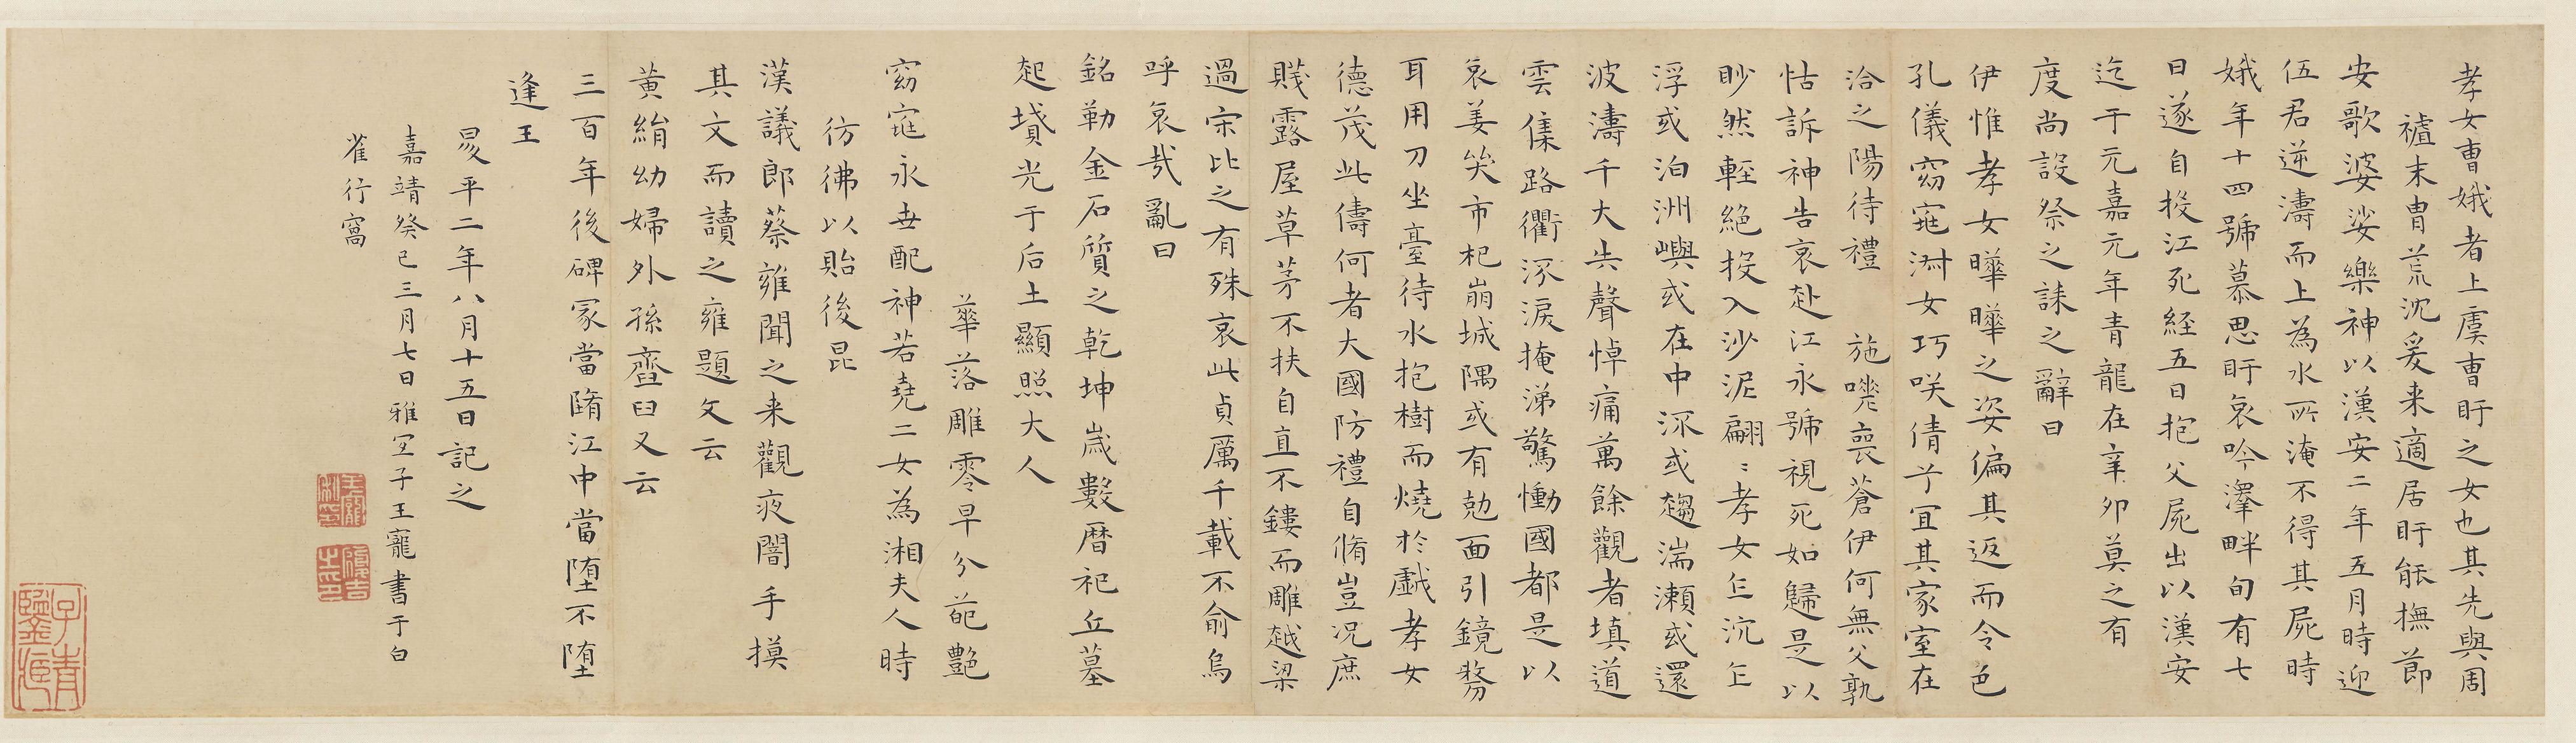 孝女曺娥者上虞曺盱之女也其先與周
禃末胄荒沈爰来適居盱能撫節
安歌婆娑樂神以漢安二年五月時迎
伍君逆濤而上為水所淹不得其屍時
娥年十四號慕思盱哀吟澤畔旬有七
日遂自投江死経五日抱父屍出以漢安
迄于元嘉元年青龍在辛卯莫之有
度尚設祭之誄之辭曰
伊惟孝女曄曄之姿偏其返而令色
孔儀窈窕淑女巧咲倩兮宜其家室在
洽之陽待禮 施嗟喪蒼伊何無父孰
怙訴神告哀赴江永號視死如歸是以
眇然輕絶投入沙泥翩〻孝女乍沉乍
浮或泊洲嶼或在中流或趨湍瀬或還
波濤千大失聲悼痛萬餘觀者填道
雲集路衢流淚掩涕驚慟國都是以
哀姜哭市杞崩城隅或有勊面引鏡剺
耳用刀坐臺待水抱樹而燒於戱孝女
德茂此儔何者大國防禮自脩豈況庶
賤露屋草茅不扶自直不鏤而雕越梁
過宋比之有殊哀此貞厲千載不俞烏
呼哀哉亂曰
銘勒金石質之乾坤歳數暦祀丘墓
起墳光于后土顯照大人
華落雕零早分葩艷
窈窕永世配神若堯二女為湘夫人時
彷彿以貽後昆
漢議郎蔡雍聞之来觀夜闇手摸
其文而讀之雍題文云
黄絹幼婦外孫齏臼又云
三百年後碑冢當隋江中當堕不堕
逢王
昜平二年八月十五日記之
嘉靖癸巳三月七日雅宜子王寵書于白
雀行窩
王履吉印
子青鑒定